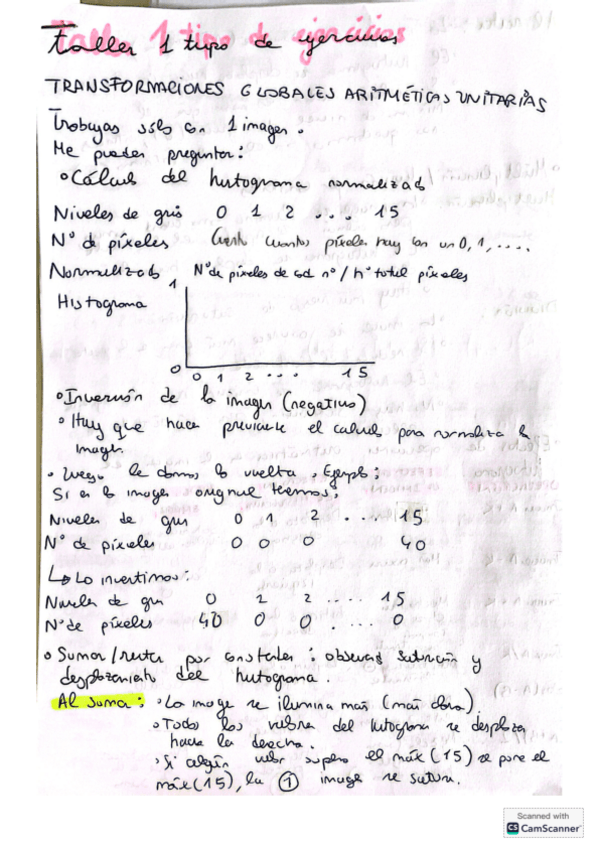 Taller 1 tipo de ejercicios
TRANSFORMACIONES GLOBALES ARITMÉTICAS UNITARIAS
Trabajas solo con 1 imagen.
Me pueden preguntar:
Cálculo del histograma normalizado
Niveles de gris 0 1 2 ... 15
Nº de píxeles Cuento cuantos píxeles hay con un 0, 1, ....
Normalizado Nº de píxeles de cada nº / nº total píxeles
1
Histograma
0
0 1 2 ... 15
Inversión de la imagen (negativo)
Hay que hacer previamente el calculo para normalizar la
imagen.
Luego le damos la vuelta, Ejemplo:
Si en la imagen original tenemos:
Niveles de gris 0 1 2 .... 15
Nº de píxeles 0 0 0 40
Lo invertimos:
Niveles de gris 0 2 2 .... 15
Nº de píxeles 40 0 0 .... 0
Sumar/restar por constantes: observas saturación y
desplazamiento del histograma.
Al sumar: La imagen se ilumina más (más clara).
Todos los valores del histograma se desplazan
hacia la derecha.
Si algún valor supera el máx (15) se pone el
máx (15), la imagen se satura.
1
Scanned with
CS CamScanner